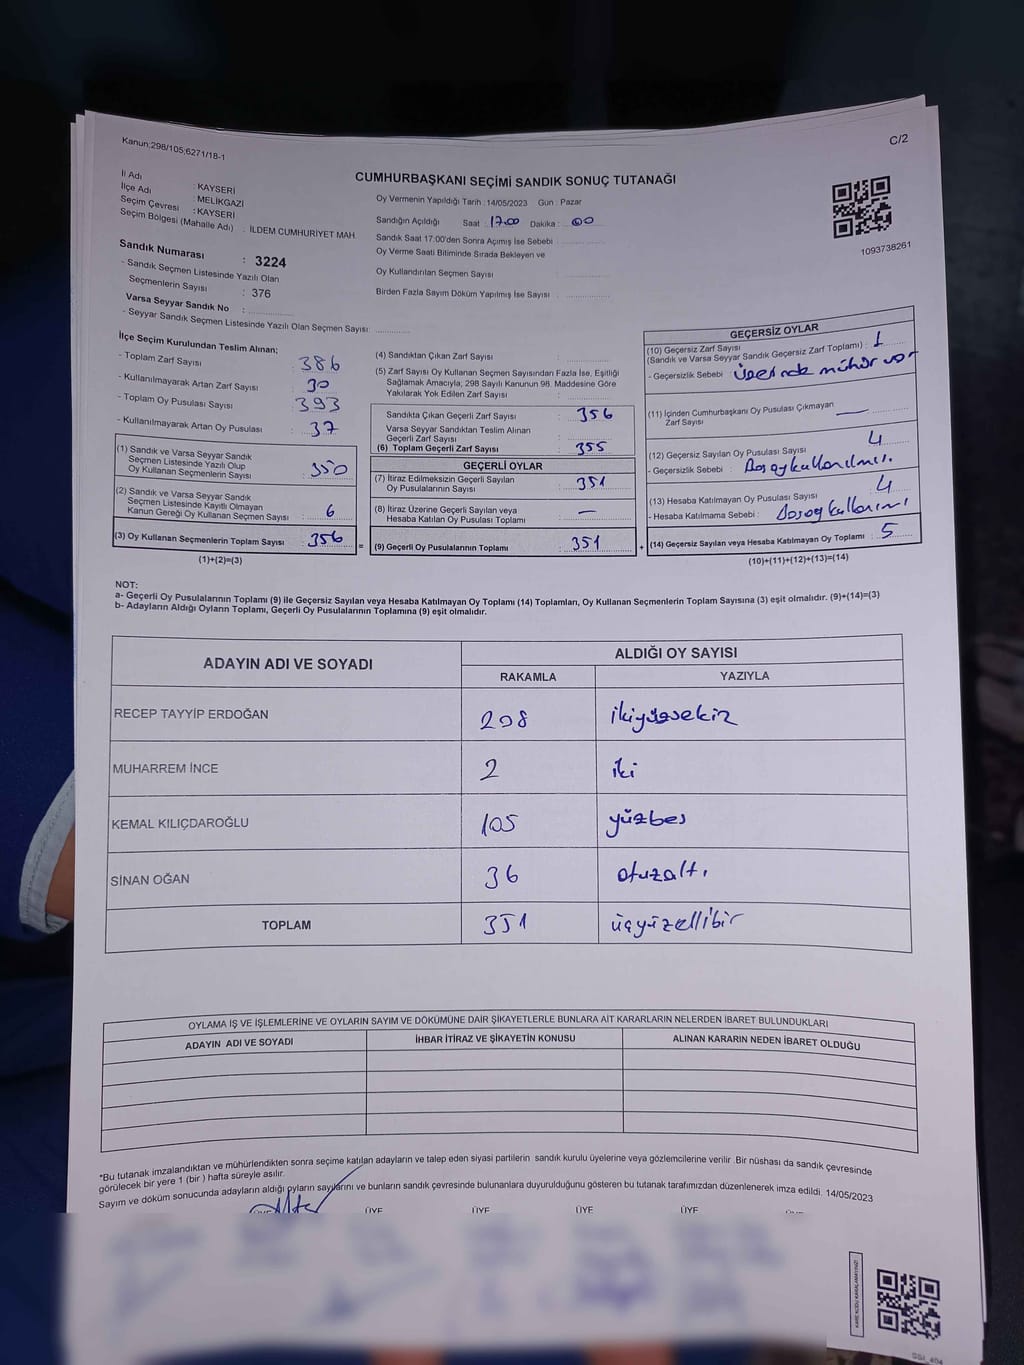 Kanun:298/105;6271/18-1
C/2
CUMHURBAŞKANI SEÇİMİ SANDIK SONUÇ TUTANAĞI
İl Adı : KAYSERİ
İlçe Adı : MELİKGAZİ
Seçim Çevresi : KAYSERİ
Seçim Bölgesi (Mahalle Adı) : İLDEM CUMHURİYET MAH.
Sandık Numarası : 3224
- Sandık Seçmen Listesinde Yazılı Olan
Seçmenlerin Sayısı : 376
Varsa Seyyar Sandık No :
- Seyyar Sandık Seçmen Listesinde Yazılı Olan Seçmen Sayısı:
Oy Vermenin Yapıldığı Tarih : 14/05/2023 Gün : Pazar
Sandığın Açıldığı Saat : 17.00 Dakika : 00
Sandık Saat 17:00'den Sonra Açımış İse Sebebi :
Oy Verme Saati Bitiminde Sırada Bekleyen ve
Oy Kullandırılan Seçmen Sayısı :
Birden Fazla Sayım Döküm Yapılmış İse Sayısı :
1093738261
İlçe Seçim Kurulundan Teslim Alınan;
- Toplam Zarf Sayısı : 386
- Kullanılmayarak Artan Zarf Sayısı : 30
- Toplam Oy Pusulası Sayısı : 393
- Kullanılmayarak Artan Oy Pusulası : 37
(1) Sandık ve Varsa Seyyar Sandık
Seçmen Listesinde Yazılı Olup
Oy Kullanan Seçmenlerin Sayısı : 350
(2) Sandık ve Varsa Seyyar Sandık
Seçmen Listesinde Kayıtlı Olmayan
Kanun Gereği Oy Kullanan Seçmen Sayısı : 6
(3) Oy Kullanan Seçmenlerin Toplam Sayısı : 356
(1)+(2)=(3)
(4) Sandıktan Çıkan Zarf Sayısı :
(5) Zarf Sayısı Oy Kullanan Seçmen Sayısından Fazla İse, Eşitliği
Sağlamak Amacıyla; 298 Sayılı Kanunun 98. Maddesine Göre
Yakılarak Yok Edilen Zarf Sayısı :
Sandıkta Çıkan Geçerli Zarf Sayısı : 356
Varsa Seyyar Sandıktan Teslim Alınan
Geçerli Zarf Sayısı :
(6) Toplam Geçerli Zarf Sayısı : 355
GEÇERLİ OYLAR
(7) İtiraz Edilmeksizin Geçerli Sayılan
Oy Pusulalarının Sayısı : 351
(8) İtiraz Üzerine Geçerli Sayılan veya
Hesaba Katılan Oy Pusulası Toplamı : —
= (9) Geçerli Oy Pusulalarının Toplamı : 351 +
GEÇERSİZ OYLAR
(10) Geçersiz Zarf Sayısı
(Sandık ve Varsa Seyyar Sandık Geçersiz Zarf Toplamı) : 1
- Geçersizlik Sebebi : üzerinde mühür var
(11) İçinden Cumhurbaşkanı Oy Pusulası Çıkmayan
Zarf Sayısı : —
(12) Geçersiz Sayılan Oy Pusulası Sayısı : 4
- Geçersizlik Sebebi : Boş oy kullanılmış.
(13) Hesaba Katılmayan Oy Pusulası Sayısı : 4
- Hesaba Katılmama Sebebi :
(14) Geçersiz Sayılan veya Hesaba Katılmayan Oy Toplamı : 5
(10)+(11)+(12)+(13)=(14)
NOT:
a- Geçerli Oy Pusulalarının Toplamı (9) ile Geçersiz Sayılan veya Hesaba Katılmayan Oy Toplamı (14) Toplamları, Oy Kullanan Seçmenlerin Toplam Sayısına (3) eşit olmalıdır. (9)+(14)=(3)
b- Adayların Aldığı Oyların Toplamı, Geçerli Oy Pusulalarının Toplamına (9) eşit olmalıdır.
ADAYIN ADI VE SOYADI
ALDIĞI OY SAYISI
RAKAMLA YAZIYLA
RECEP TAYYİP ERDOĞAN 208 ikiyüzsekiz
MUHARREM İNCE 2 iki
KEMAL KILIÇDAROĞLU 105 yüzbeş
SİNAN OĞAN 36 otuzaltı
TOPLAM 351 üçyüzellibir
OYLAMA İŞ VE İŞLEMLERİNE VE OYLARIN SAYIM VE DÖKÜMÜNE DAİR ŞİKAYETLERLE BUNLARA AİT KARARLARIN NELERDEN İBARET BULUNDUKLARI
ADAYIN ADI VE SOYADI İHBAR İTİRAZ VE ŞİKAYETİN KONUSU ALINAN KARARIN NEDEN İBARET OLDUĞU
*Bu tutanak imzalandıktan ve mühürlendikten sonra seçime katılan adayların ve talep eden siyasi partilerin sandık kurulu üyelerine veya gözlemcilerine verilir .Bir nüshası da sandık çevresinde
görülecek bir yere 1 (bir ) hafta süreyle asılır.
Sayım ve döküm sonucunda adayların aldığı oyların sayılarını ve bunların sandık çevresinde bulunanlara duyurulduğunu gösteren bu tutanak tarafımızdan düzenlenerek imza edildi. 14/05/2023
ÜYE ÜYE ÜYE ÜYE
KARE KODU KARALAMAYINIZ!